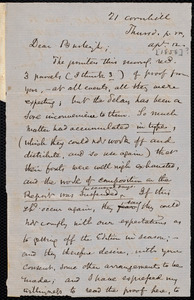 21 Cornhill
Thursd. p.m.
Apr. 12.
[1855]
Dear Burleigh;
The printers this morning recd.
3 parcels (I think 3) of proof from
you, — at all events, all they were
expecting; but the delay has been a
sore inconvenience to them. So much
matter had accumulated in type,
(which they could not work off and
distribute, and so use again) that
their fonts were well nigh exhausted,
and the work of composition on the
Report was Suspended. If this
shd. occur again, they
could not comply with our expectations as
to getting off the Edition in season;
and they therefore desire, with your
consent, some other arrangement to be
made; and I have expressed my
willingness to read the proof here, to